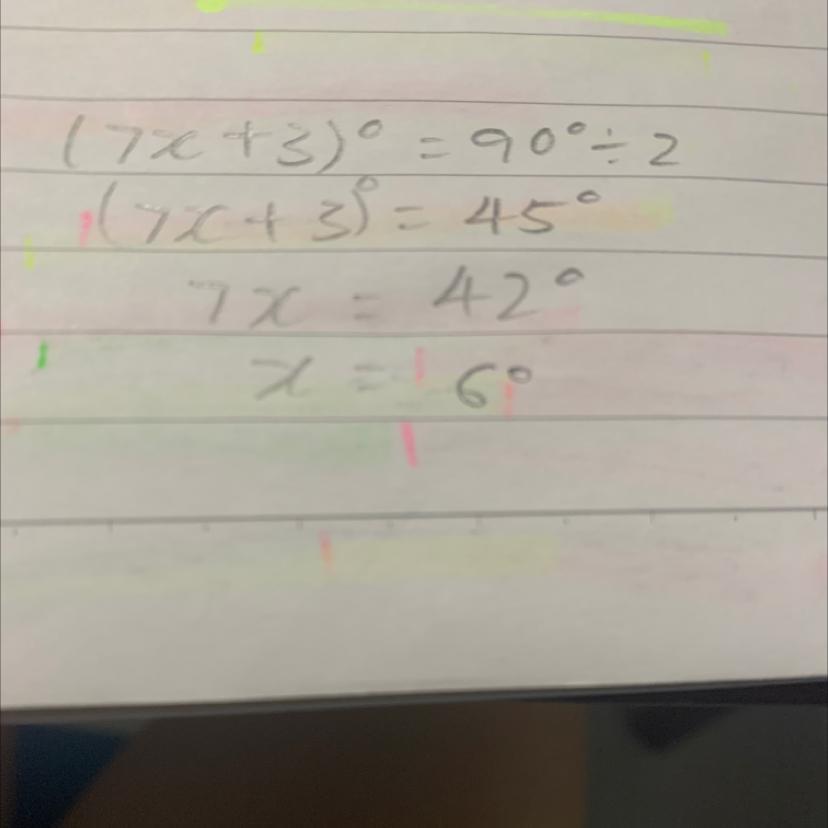 (7x+3)° = 90° ÷ 2
(7x+3)° = 45°
7x = 42°
x = 6°